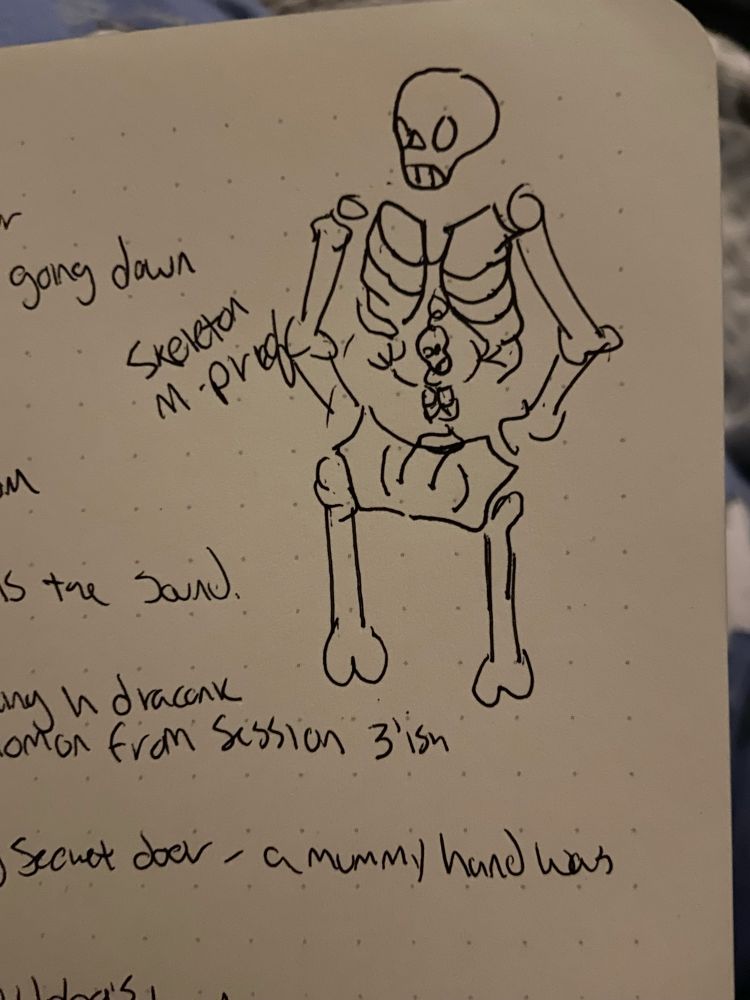 going down
Skeleton
M-preg
is the sound.
h draconk
from Session 3'ish
Secuet door - a mummy hand was